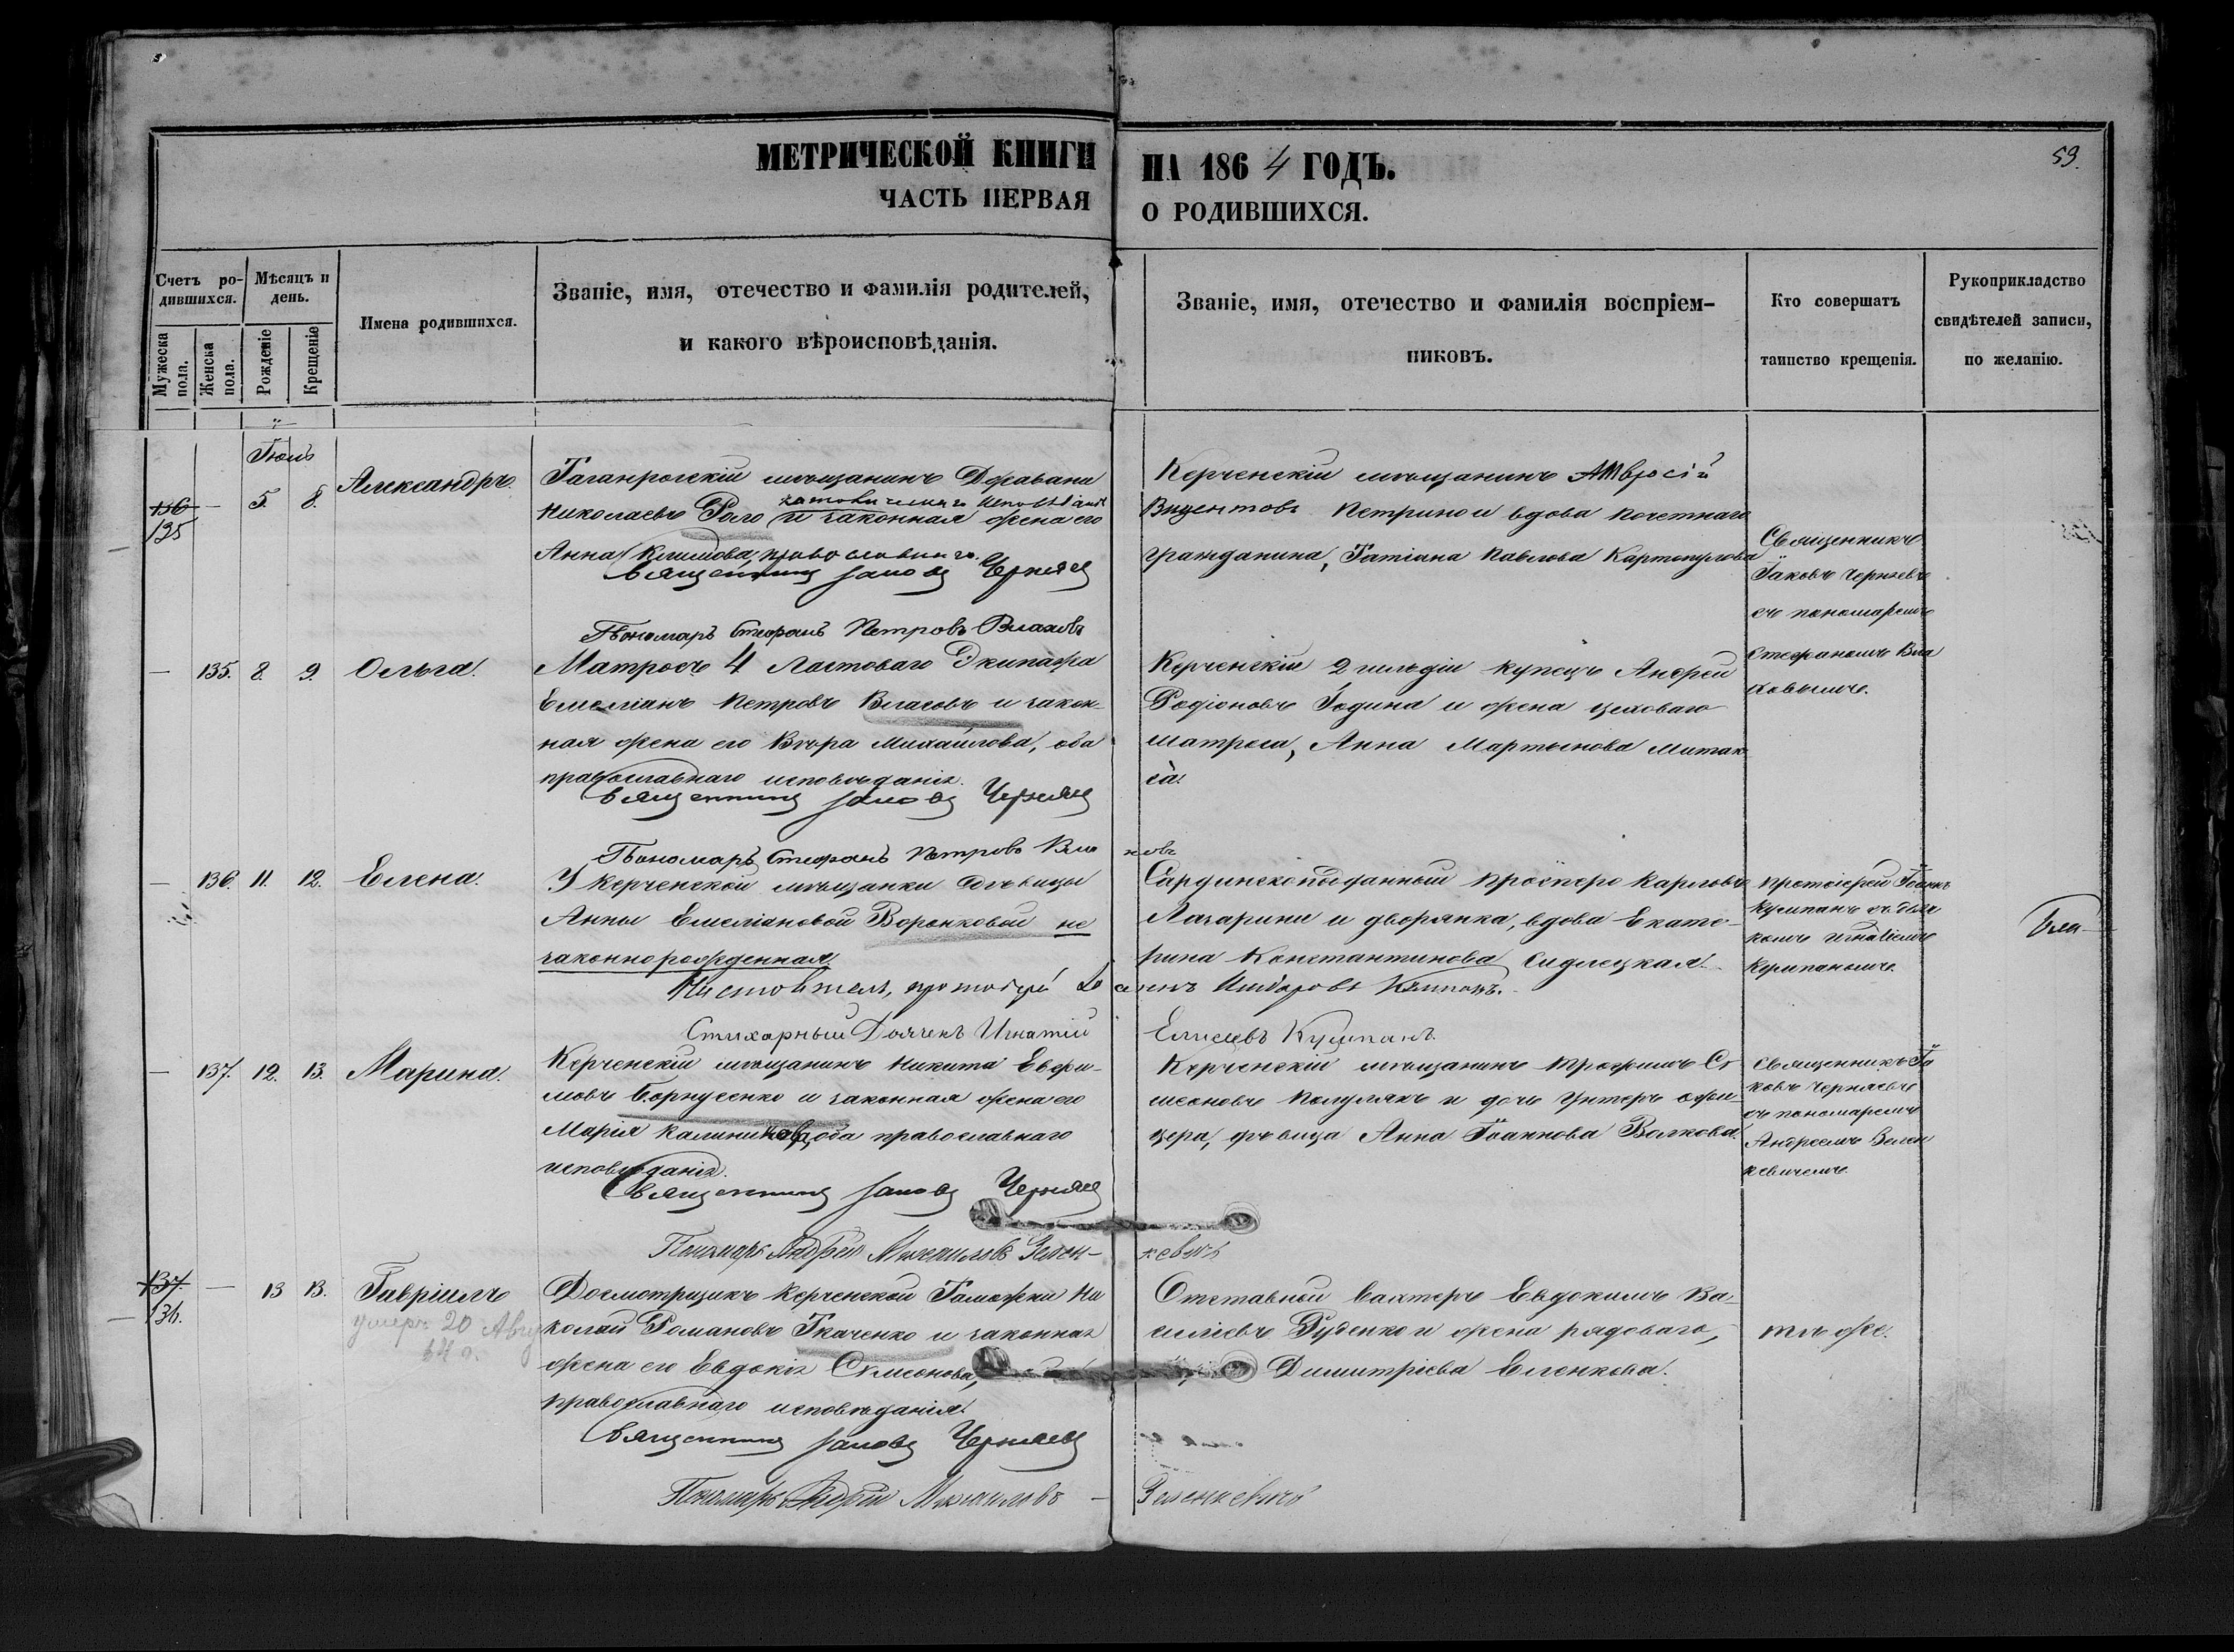 МЕТРИЧЕСКОЙ КНИГИ НА 1864 ГОДЪ.
59.
ЧАСТЬ ПЕРВАЯ О РОДИВШИХСЯ.
Счетъ родившихся.
Мужеска пола.
Женска пола.
Мѣсяцъ и день.
Рожденіе
Крещеніе
Имена родившихся.
Званіе, имя, отечество и фамилія родителей,
и какого вѣроисповѣданія.
Званіе, имя, отечество и фамилія воспріем-
никовъ.
Кто совершатъ
таинство крещенія.
Рукоприкладство
свидѣтелей записи,
по желанію.
Іюль
136
135
5.
8.
Александръ.
Таганрогскій мѣщанинъ Джавани
католическаго исповѣданія
Николаевъ Роло и законная жена его
Анна Климова, православнаго.
Священникъ Іаковъ Черняев
Пономарь Стефанъ Петровъ Влаховъ
Керченскій мѣщанинъ Амвросій
Вицентовъ Петрино и вдова почетнаго
гражданина, Татіана Павлова Картопулова
Священникъ
Іаковъ Черняевъ
съ пономаремъ
Стефаномъ Вла
ховымъ.
135. 8. 9. Ольга.
Матросъ 4 Ластоваго Экипажа
Емеліанъ Петровъ Власовъ и закон-
ная жена его Вѣра Михайлова, оба
православнаго исповѣданія.
Священникъ Іаковъ Черняев
Пономарь Стефанъ Петровъ Влаховъ
Керченскій 2 гильдіи купецъ Андрей
Родіоновъ Година и жена цеховаго
матроса, Анна Мартынова Митак
са.
136. 11. 12. Елена.
У Керченской мѣщанки дѣвицы
Анны Емеліановой Воронковой не
законнорожденная.
Настоятель, протоіерей
Стихарный Дьячекъ Игнатій Елисеевъ Кумпанъ.
Сардинскоподданный Просперо Карловъ
Лазарини и дворянка, вдова Екате-
рина Константинова Сидлецкая.
Протоіерей Іоаннъ
Кумпанъ съ дья
комъ Игнатіемъ
Кумпаномъ.
137. 12. 13. Марина.
Керченскій мѣщанинъ Никита Евфи-
мовъ Борнусенко и законная жена его
Марія Калинина, оба православнаго
исповѣданія.
Священникъ Іаковъ Черняев
Пономарь Андрей Михаиловъ Зеленкевичъ
Керченскій мѣщанинъ Трофимъ Си
меоновъ Полулякъ и дочь Унтеръ офи-
цера, дѣвица Анна Іоаннова Волкова.
Священникъ Іа
ковъ Черняевъ
съ пономаремъ
Андреемъ Зелен
кевичемъ.
137.
136.
13 13. Гавріилъ
умеръ 20 Авгу
64 г.
Досмотрщикъ Керченской Таможни Ни
колай Романовъ Ткаченко и законная
жена его Евдокія Симеонова,
православнаго исповѣданія.
Священникъ Іаковъ Черняев
Пономарь Андрей Михаиловъ Зеленкевичъ
Отставной вахтеръ Евдокимъ Ва-
силіевъ Руденко и жена рядоваго,
Димитріева Еленкова.
тѣ же.